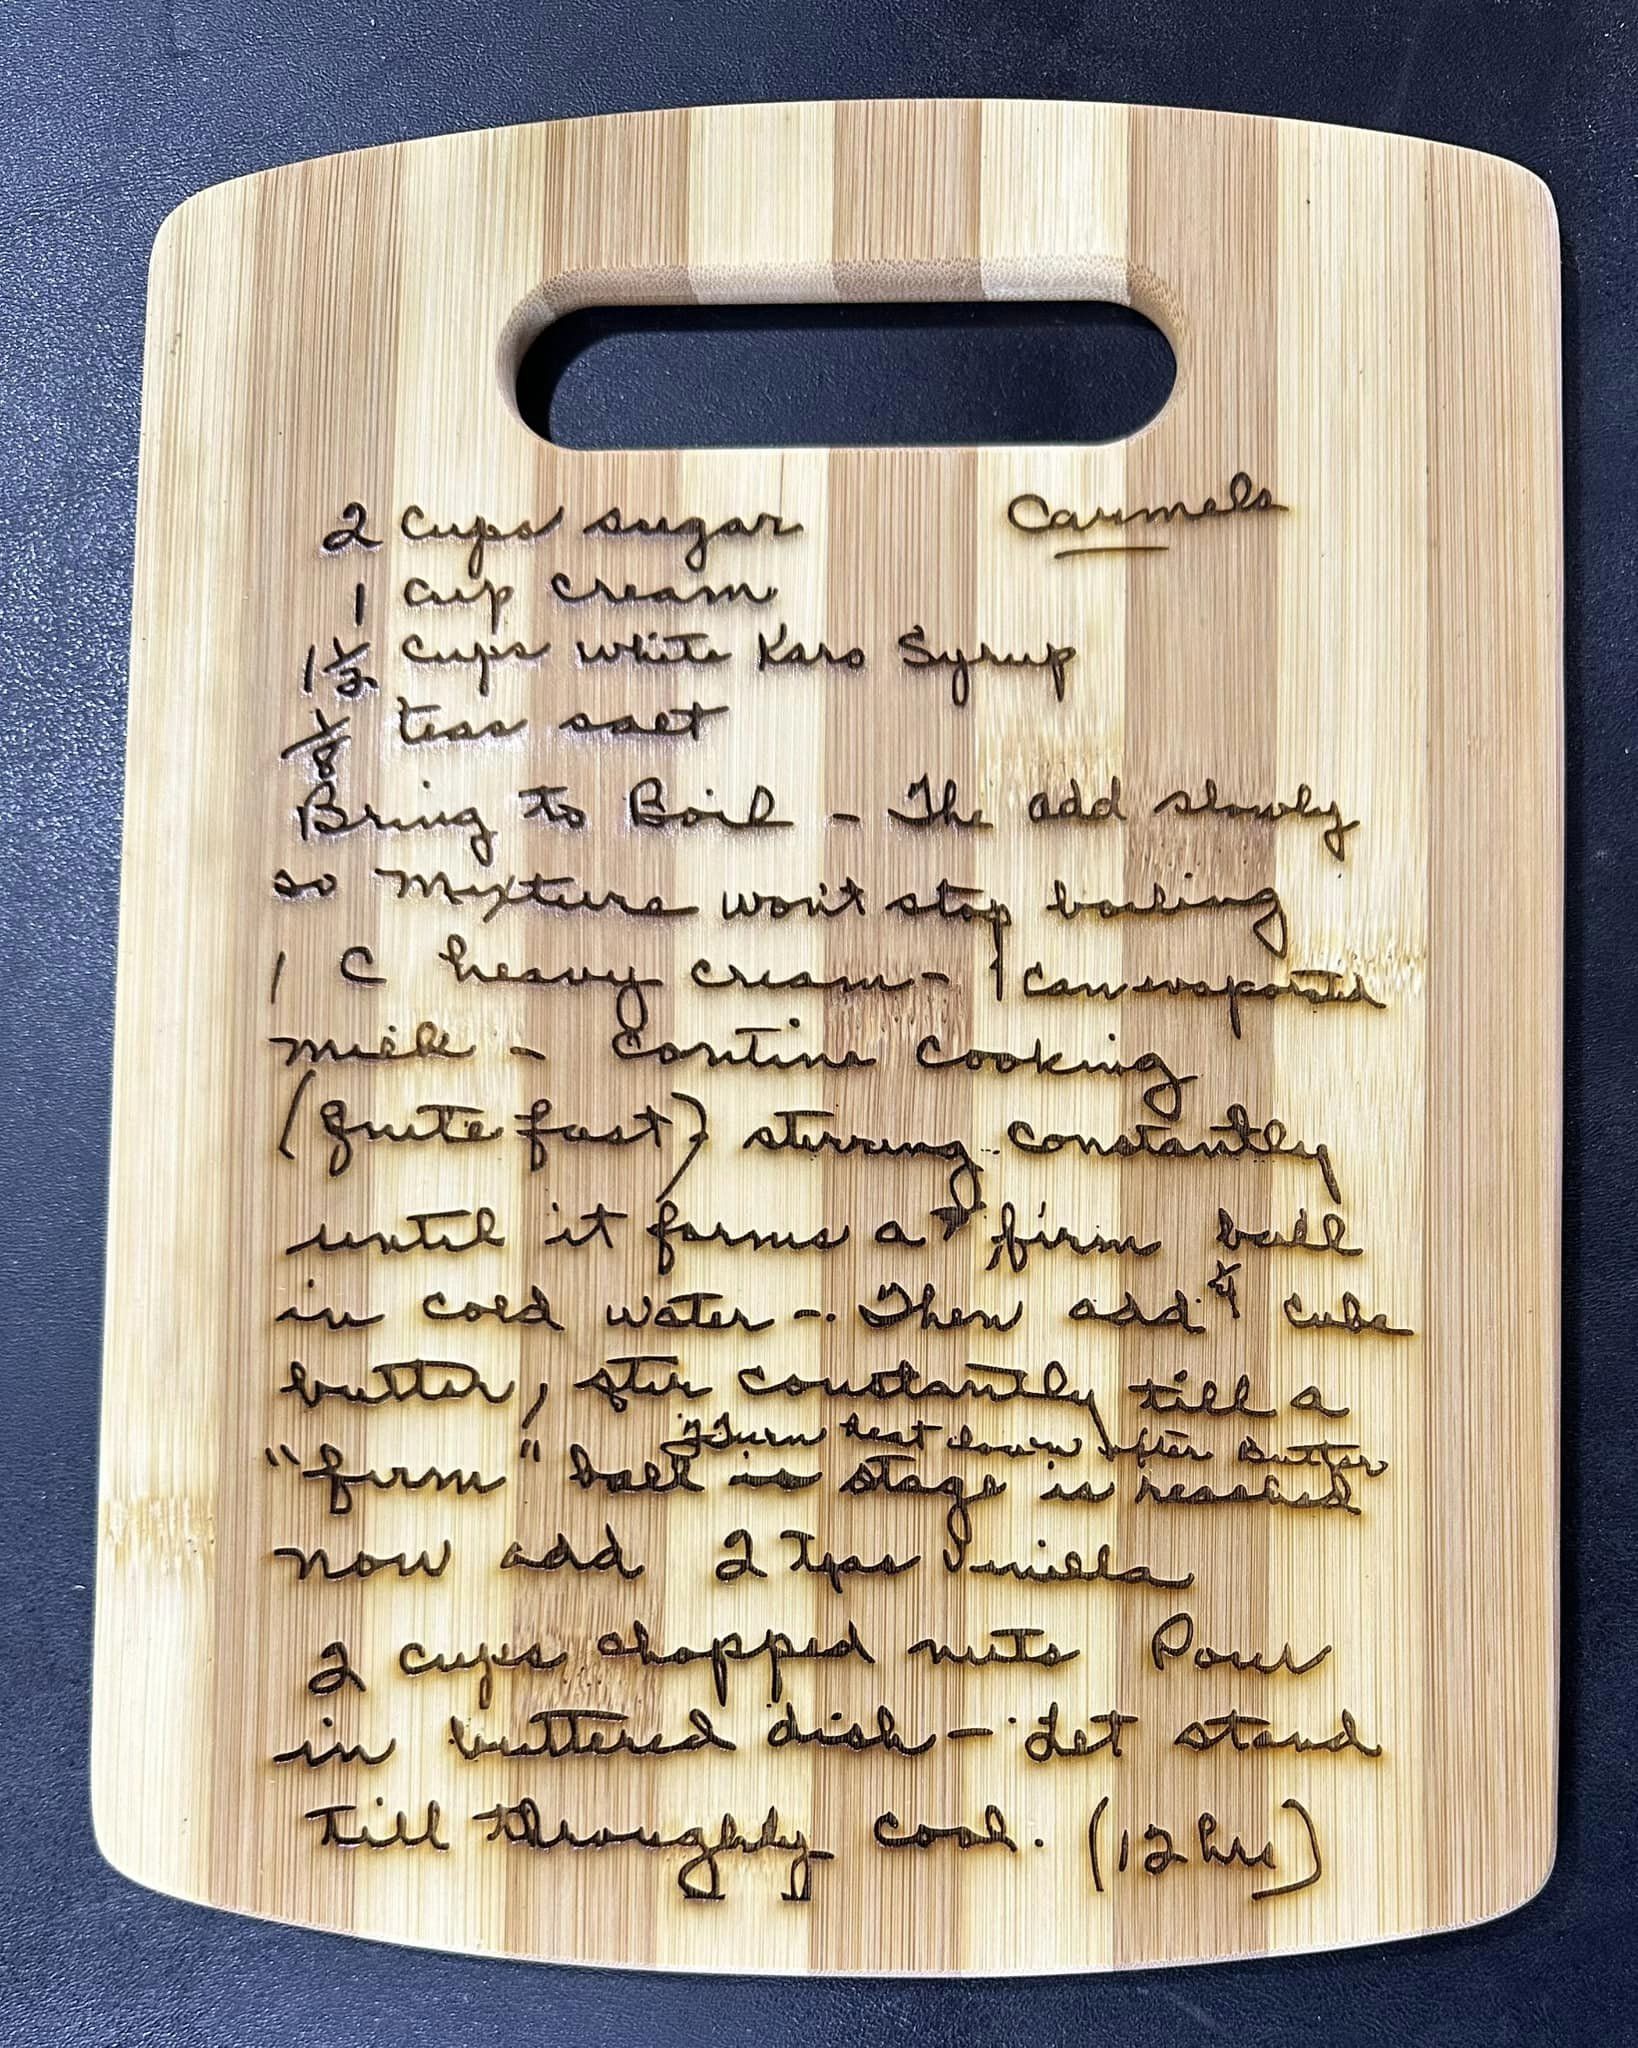 Carmels
2 cups sugar
1 cup cream
1 1/2 cups white Karo Syrup
1/8 teas salt
Bring to Boil - The add slowly
so Mixture won't stop boiling
1 C heavy cream - 1 can evaporated
milk - Contine cooking
(Quite fast) stirring constantly
until it forms a firm ball
in cold water - . Then add 1/4 cube
butter, stir constantly till a
Turn heat down after Butter
"firm" ball is stage is reached
now add 2 teas Vinilla
2 cups chopped nuts Pour
in buttered dish - Let stand
till throughly cool. (12 hrs)